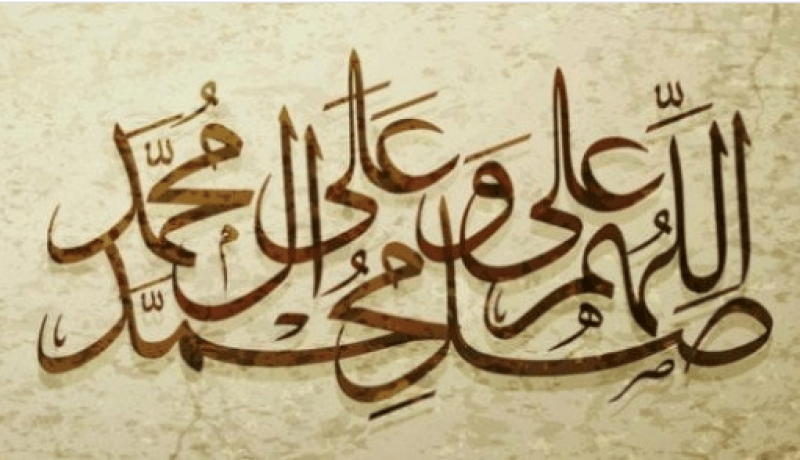 اللَّهُمَّ صل على محمد وعلى ال محمد